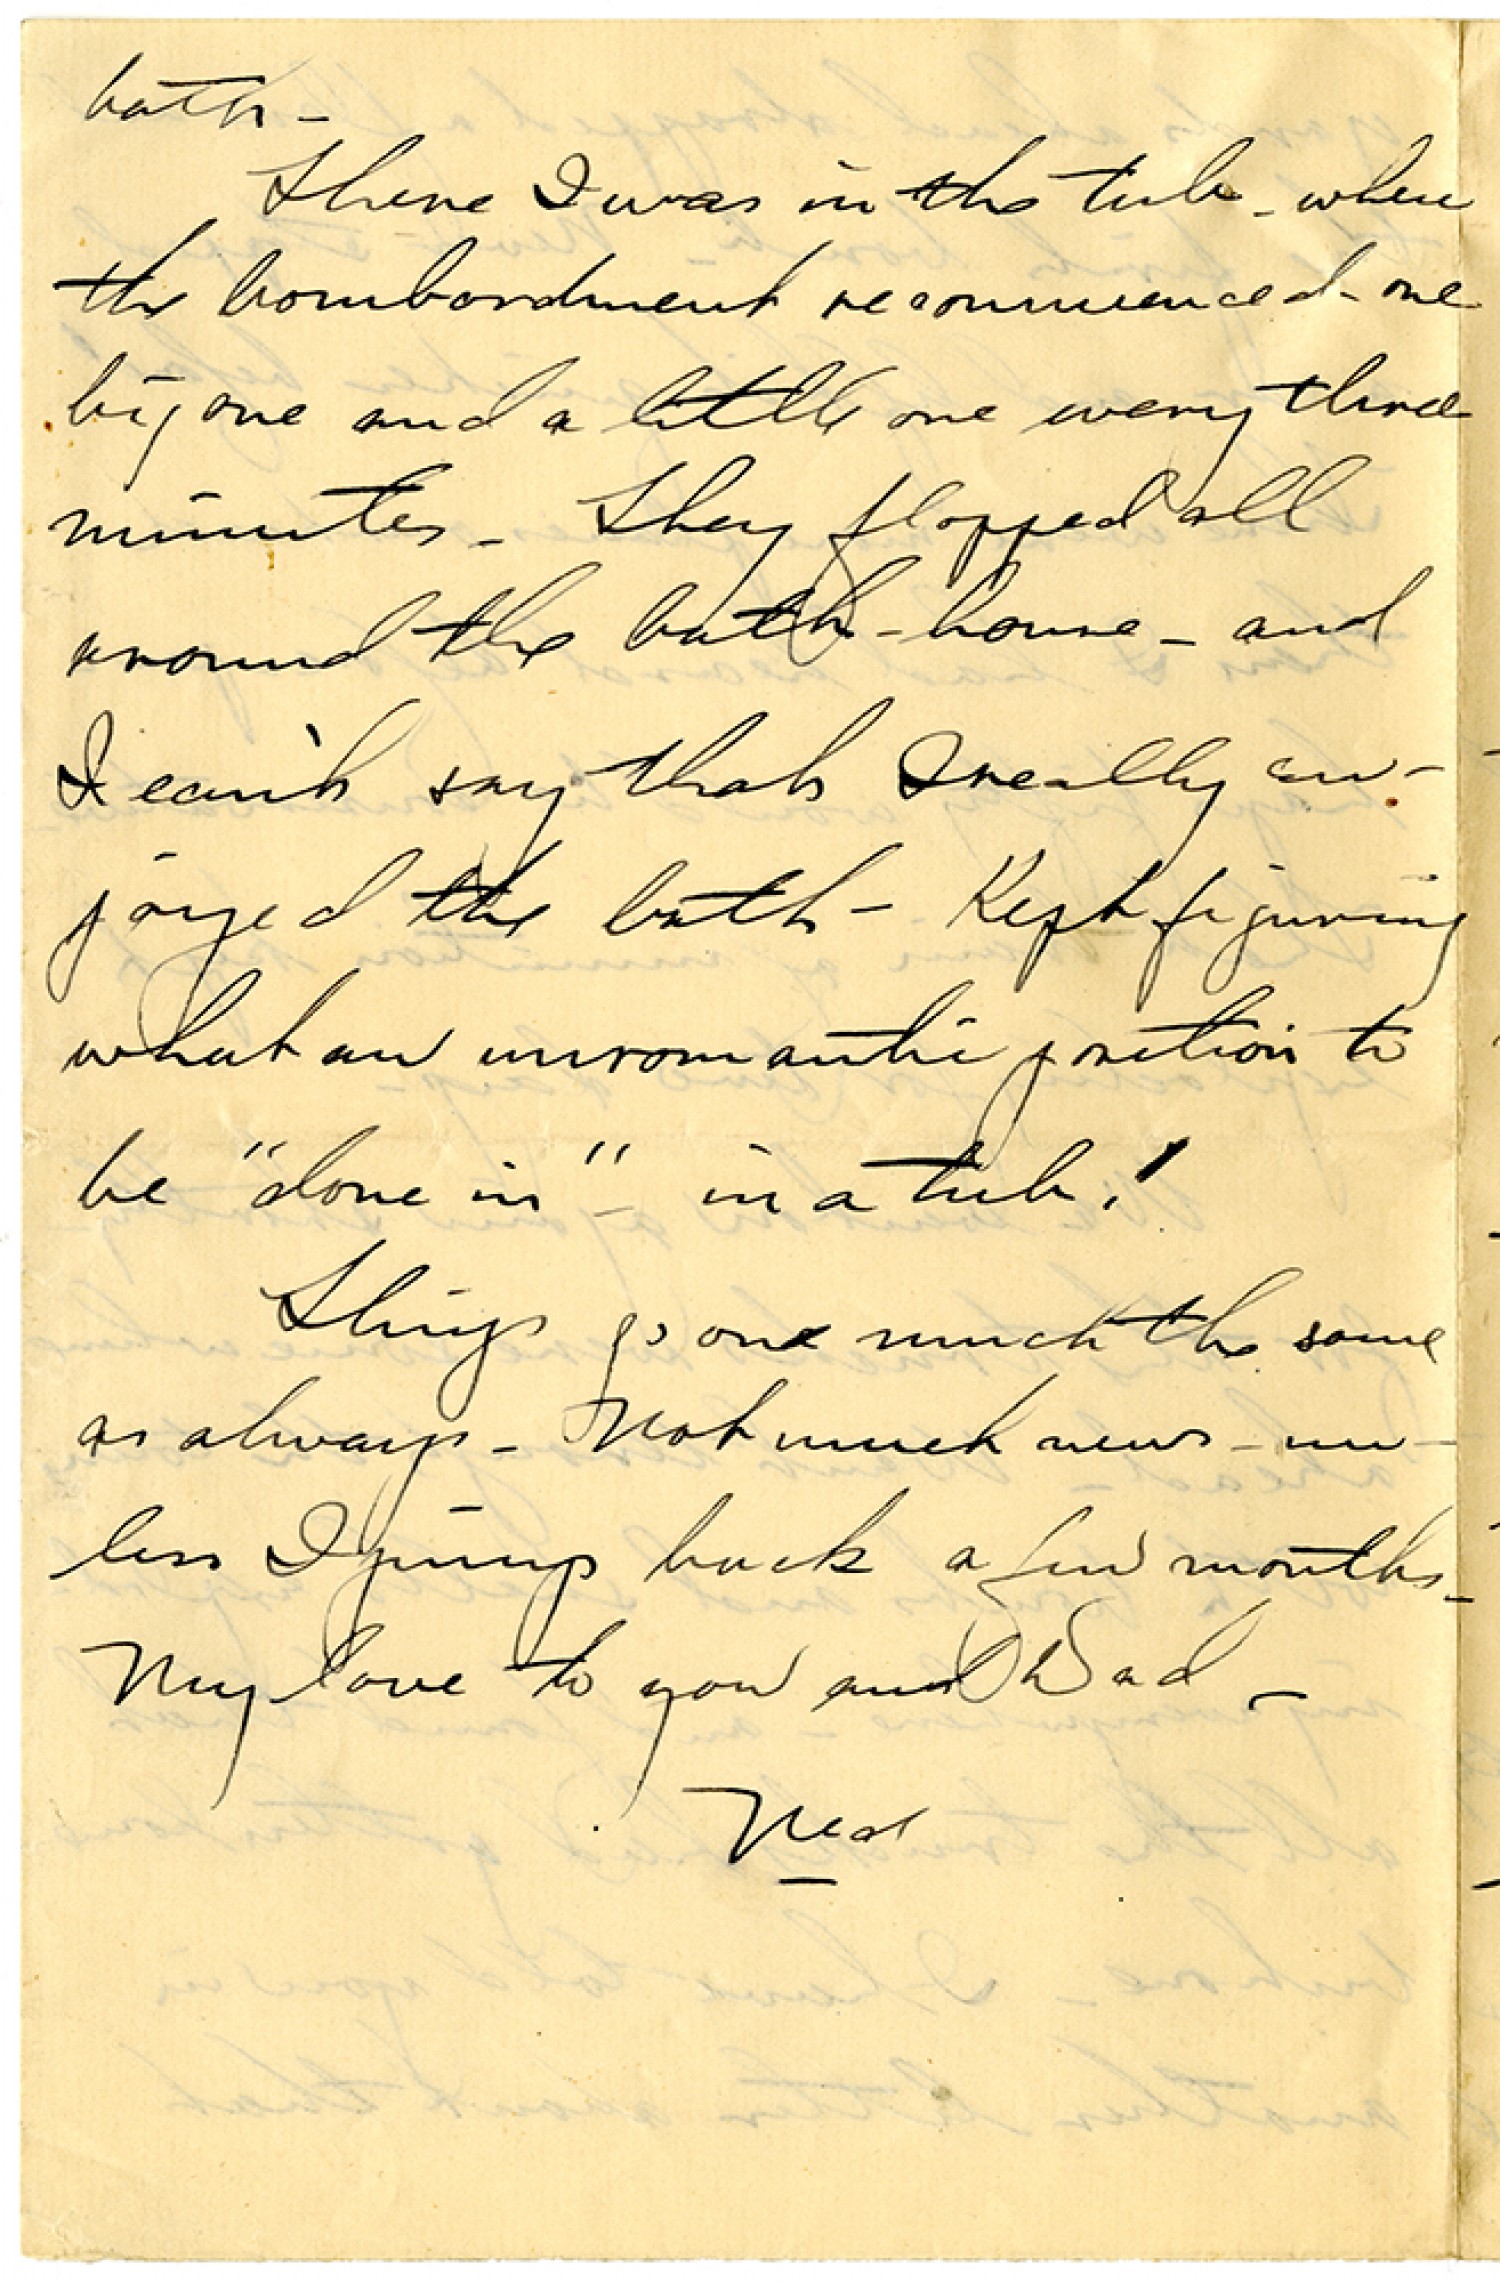 bath -
There I was in the tub - when
the bombardment recommenced - one
big one and a little one every three
minutes - They flopped all
around the bath - house - and
I can't say that I really en-
joyed the bath - Kept figuring
what an unromantic position to
be "done in" - in a tub!
Things go one much the same
as always - Not much news - un-
less I jump back a few months -
My love to you and Dad -
Ned